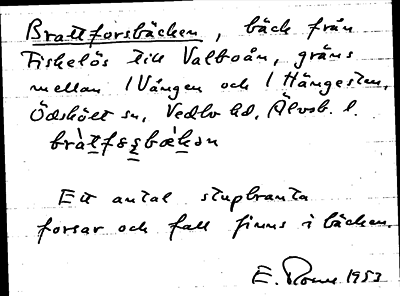 Brattforsbäcken, bäck från
Fiskelös till Valboån, gräns
mellan 1 Vången och 1 Hängesten,
Ödskölt sn, Vedbo hd, Älvsb. l.
Ett antal stupbranta
forsar och fall finns i bäcken.
E. 1953